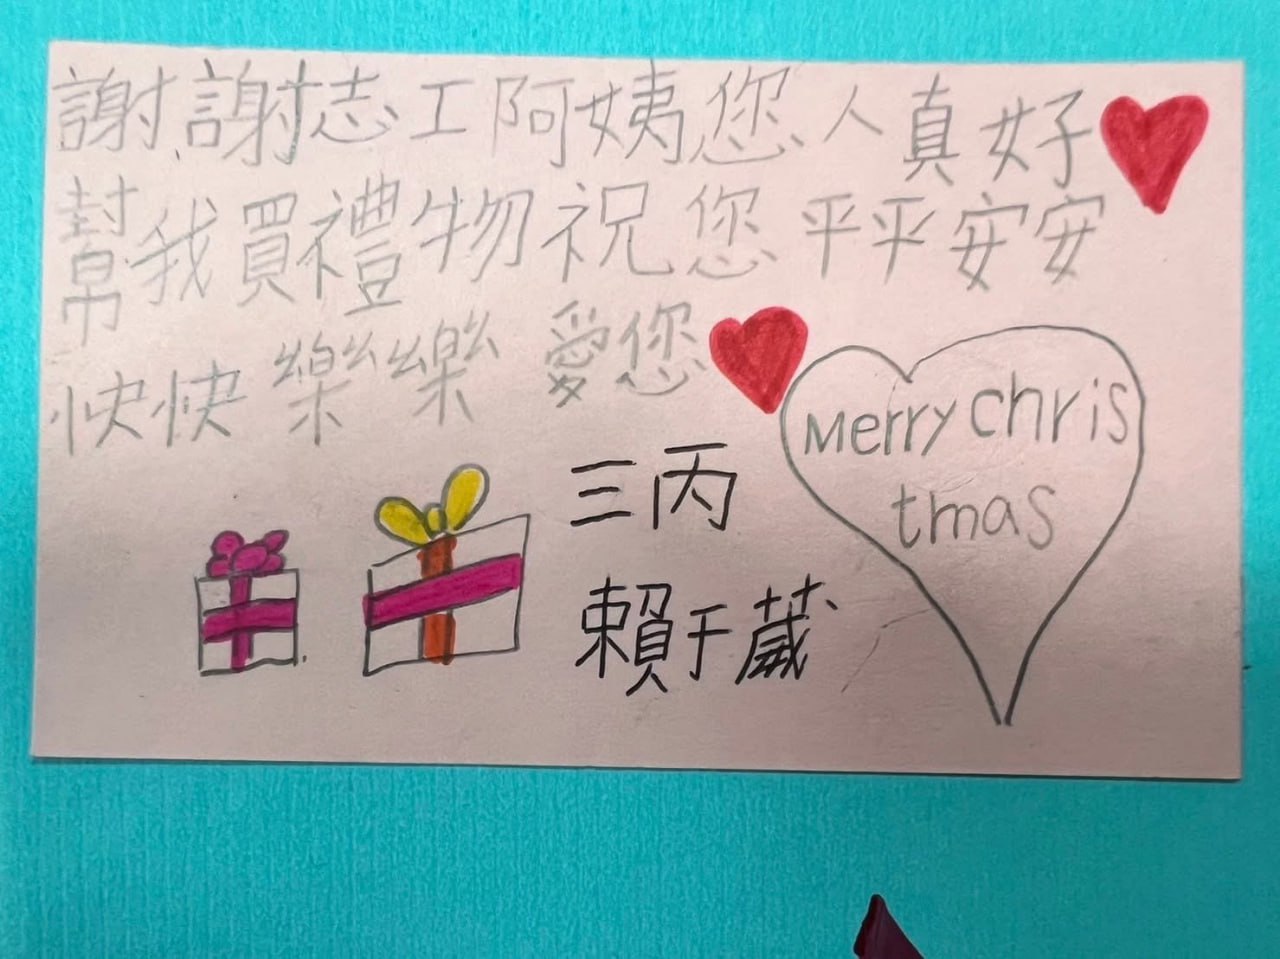 謝謝志工阿姨您人真好
幫我買禮物祝您平平安安
快快樂樂 愛您
三丙
賴于葳
Merry Chris
tmas